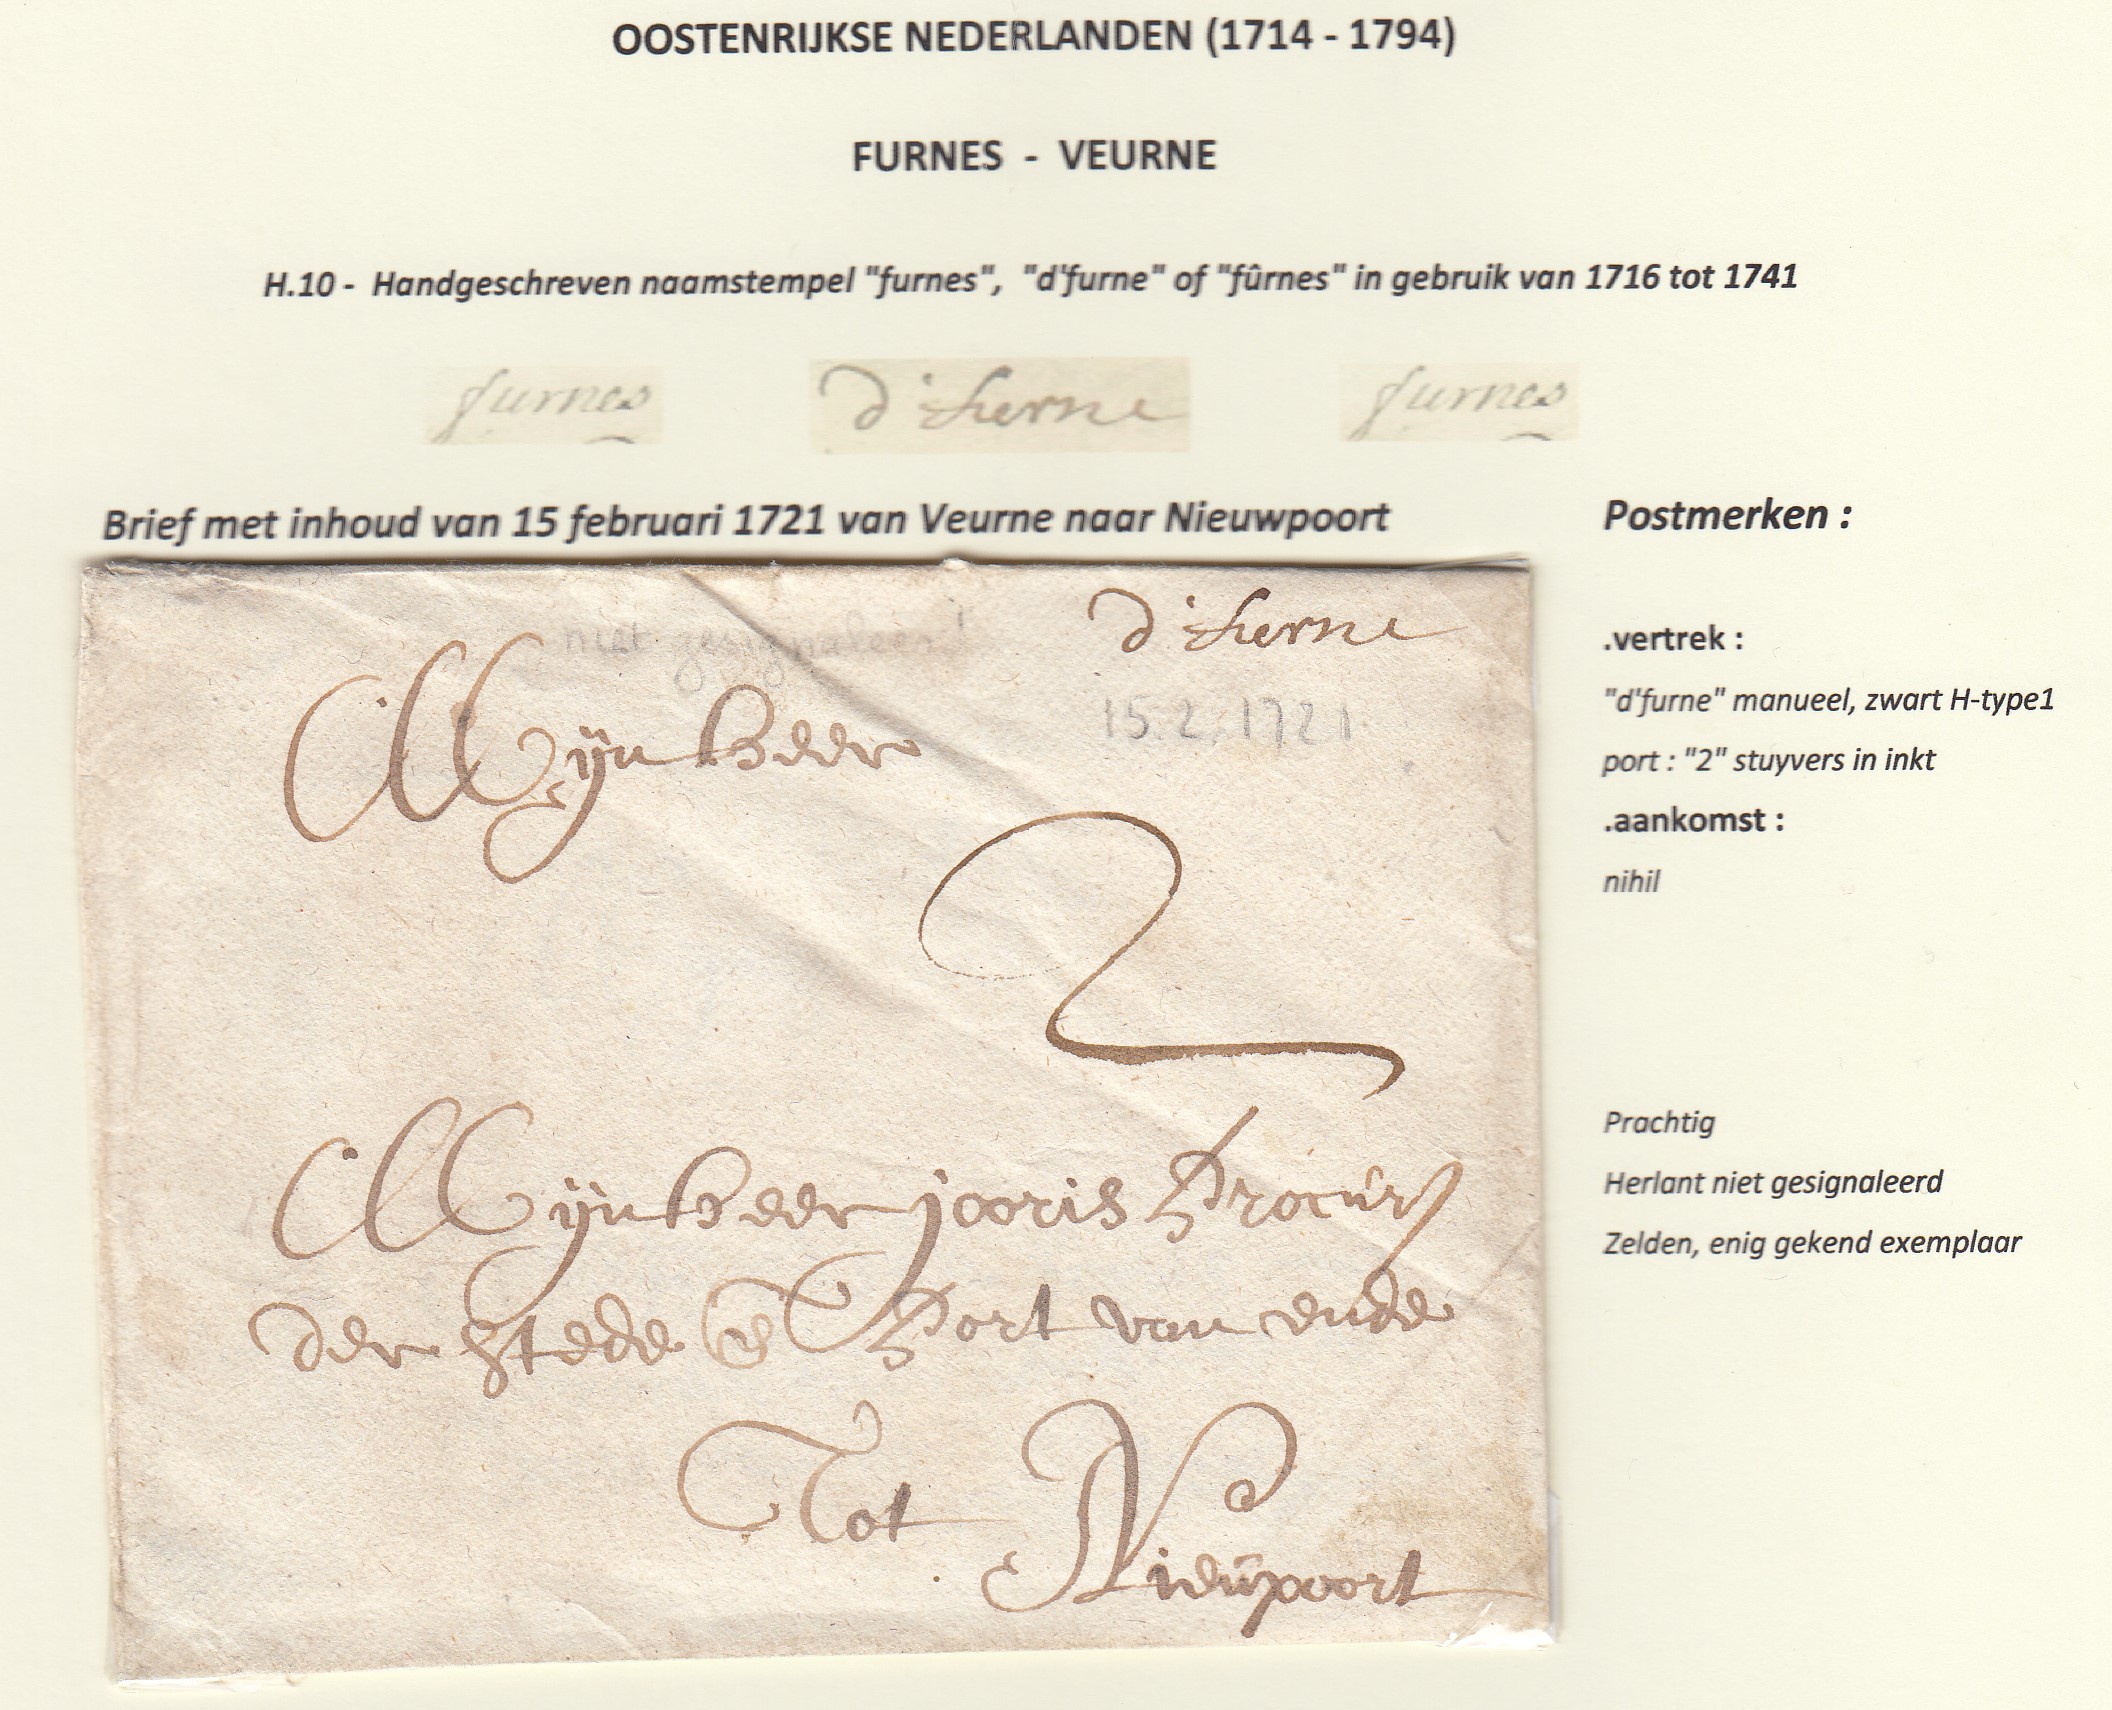 OOSTENRIJKSE NEDERLANDEN (1714 - 1794)
FURNES - VEURNE
H.10 - Handgeschreven naamstempel "furnes", "d'furne" of "fûrnes" in gebruik van 1716 tot 1741
furnes
d'furne
furnes
Brief met inhoud van 15 februari 1721 van Veurne naar Nieuwpoort
d'furne
niet gesignaleerd
15.2.1721
Mijn heer
2
Mijn heer jooris Procur
der stede Port van ende
Tot Nieupoort
Postmerken :
.vertrek :
"d'furne" manueel, zwart H-type1
port : "2" stuyvers in inkt
.aankomst :
nihil
Prachtig
Herlant niet gesignaleerd
Zelden, enig gekend exemplaar